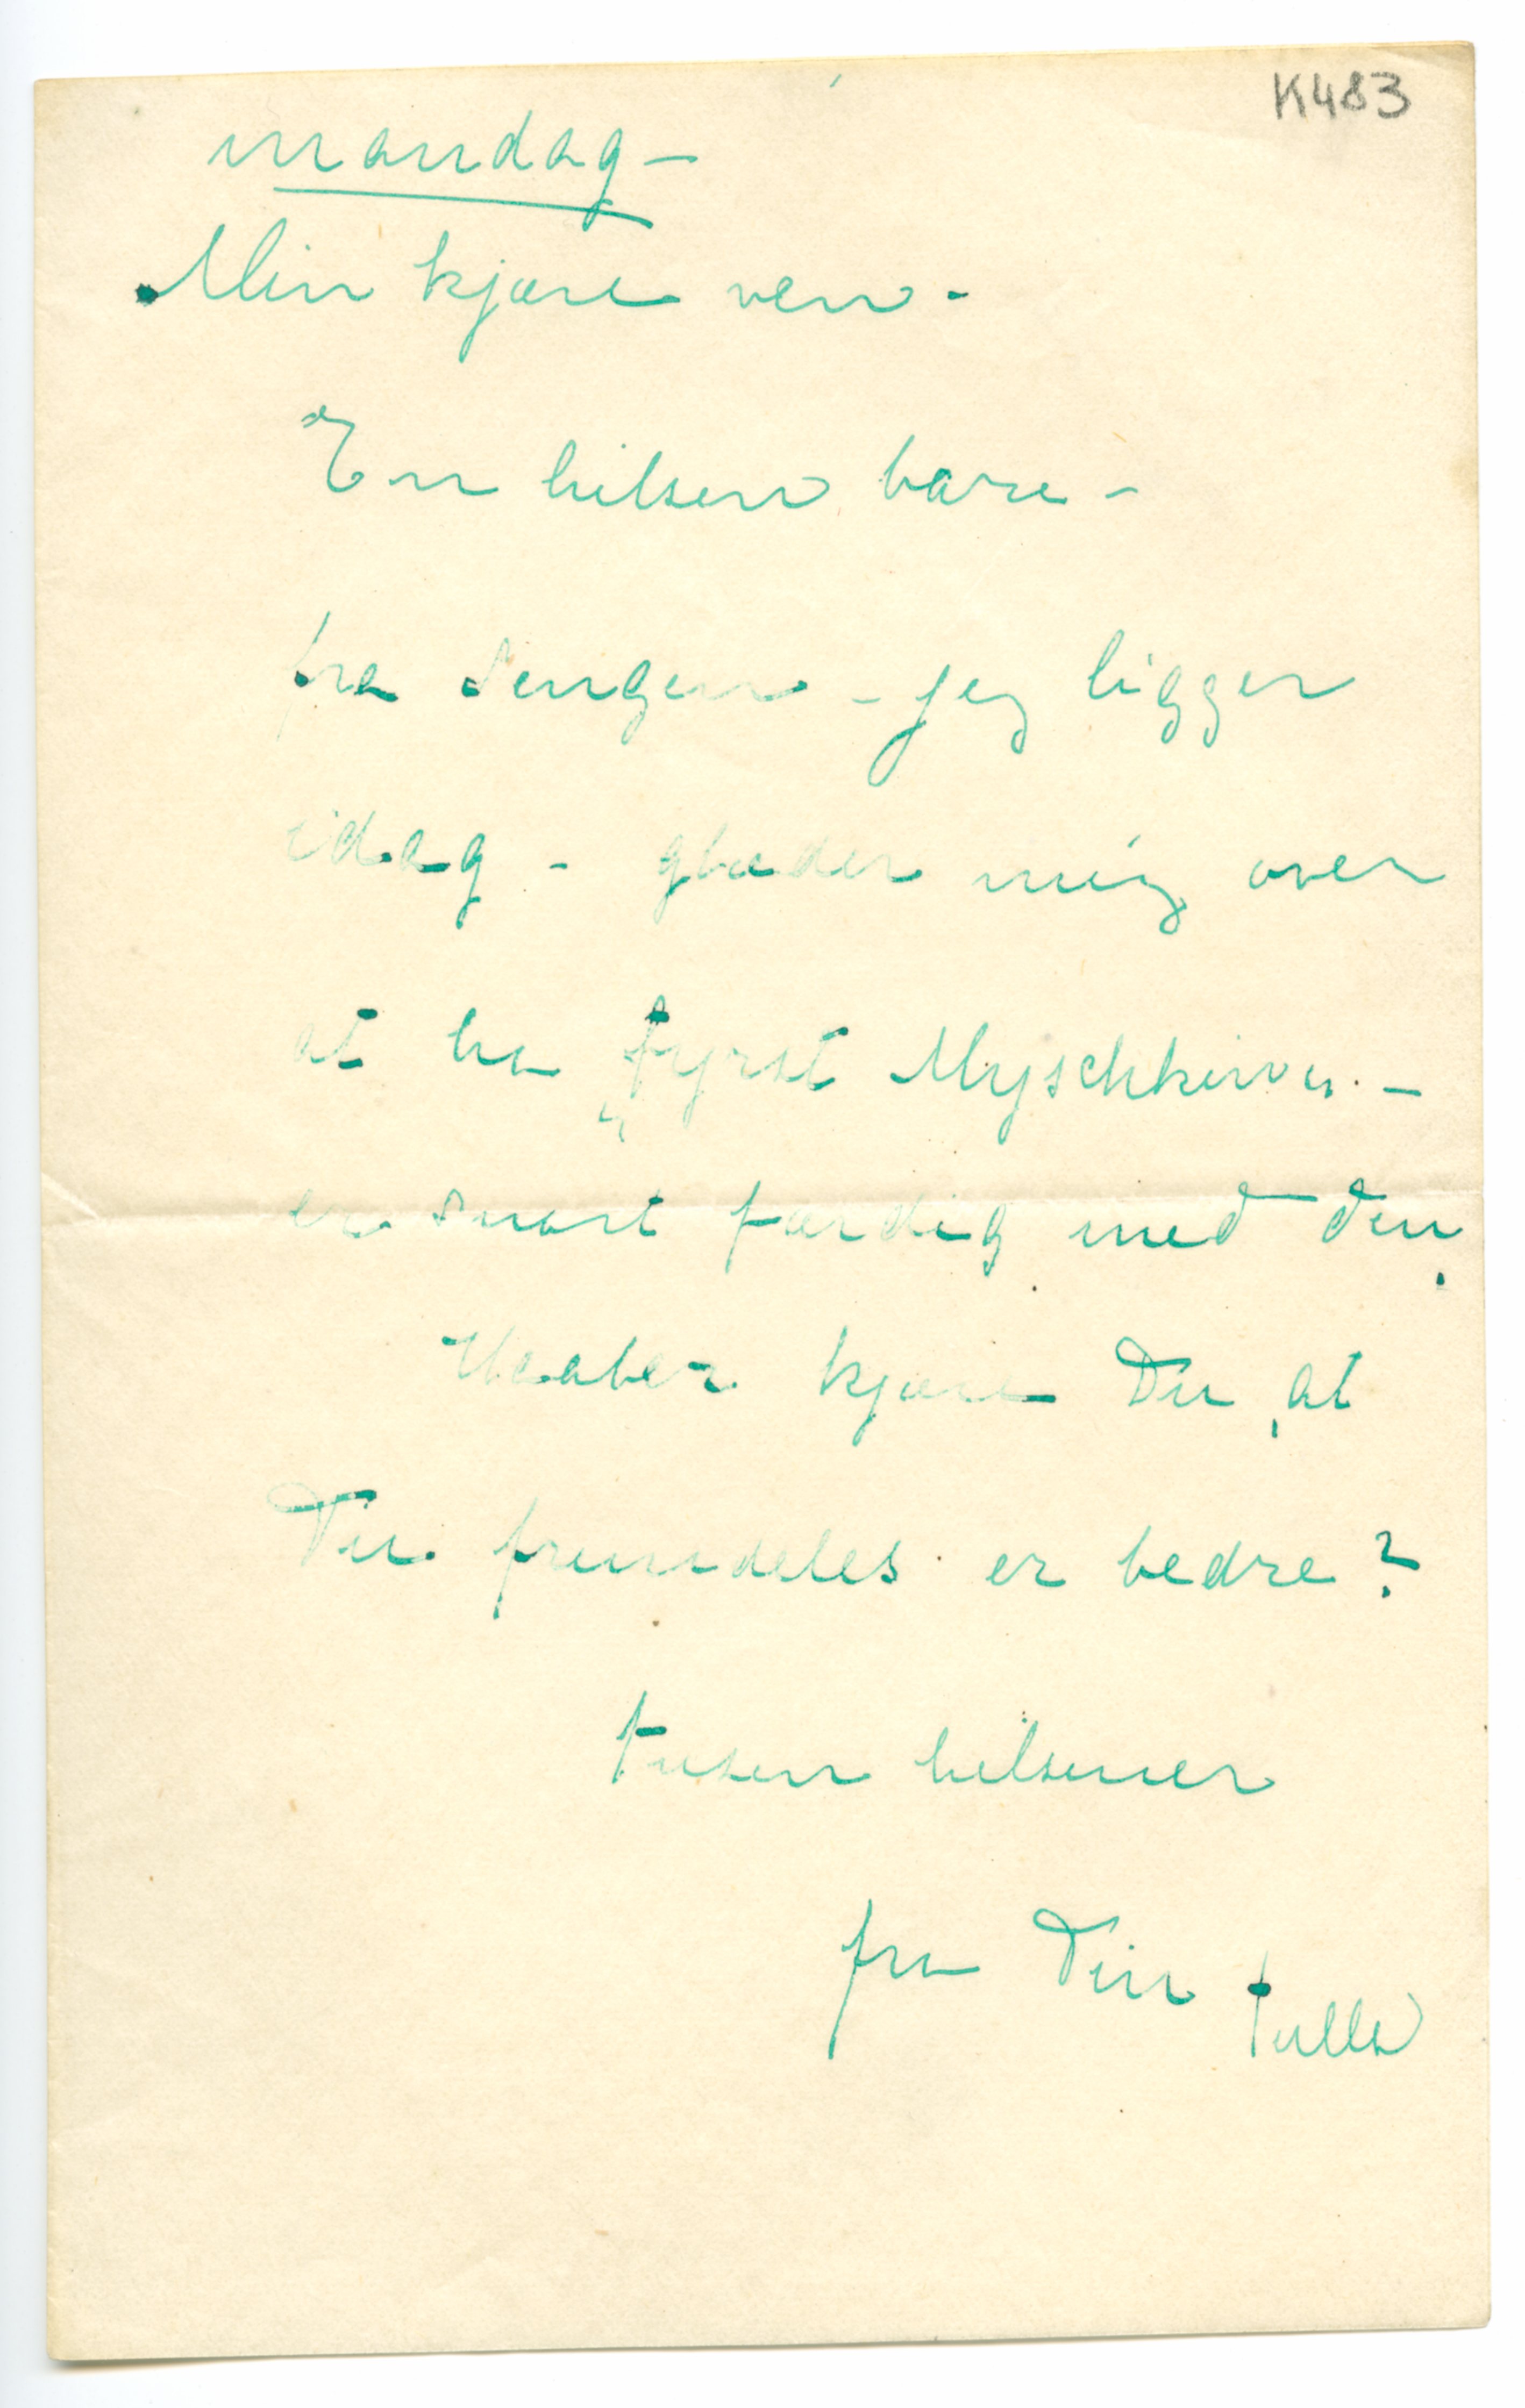 K483
mandag –
Min kjære ven –
En hilsen bare –
fra sengen – jeg ligger
idag – glæder mig over
at ha „fyrst Myschkin". –
er snart færdig med den.
Haaber kjære Du, at
Du fremdeles er bedre?
tusen hilsener
fra Din Tulla